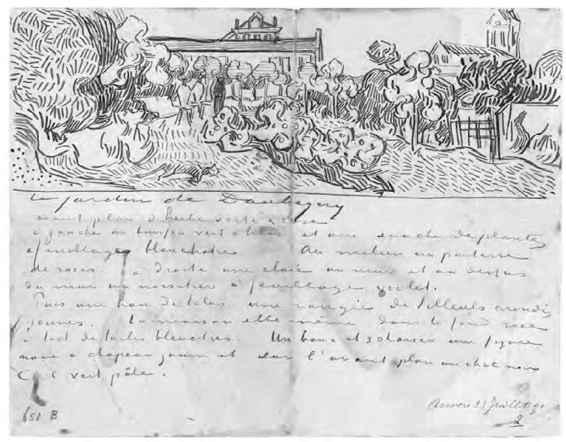 Le jardin de Daubigny
avant plan d'herbe verte & rose
à gauche un buisson vert & lilas et une souche de plantes
à feuillages blanchâtres Au milieu un parterre
de roses à droite une claie un mur et au dessus
du mur un noisetier à feuillage violet.
Puis une haie de lilas une rangée de tilleuls arrondis
jaunes. La maison elle même dans le fond rose
à toit de tuiles bleuâtres. Un banc et 3 chaises une figure
noire à chapeau jaune et sur l'avant plan un chat noir
Ciel vert pâle.
651 B
Auvers 23 Juillet